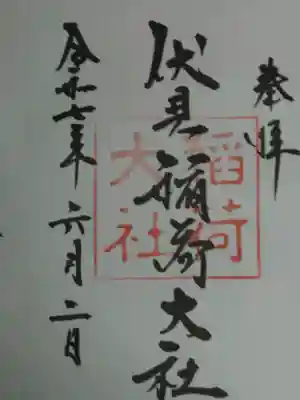 奉拝
伏見稲荷大社
稲荷大社
令和七年 六月二日